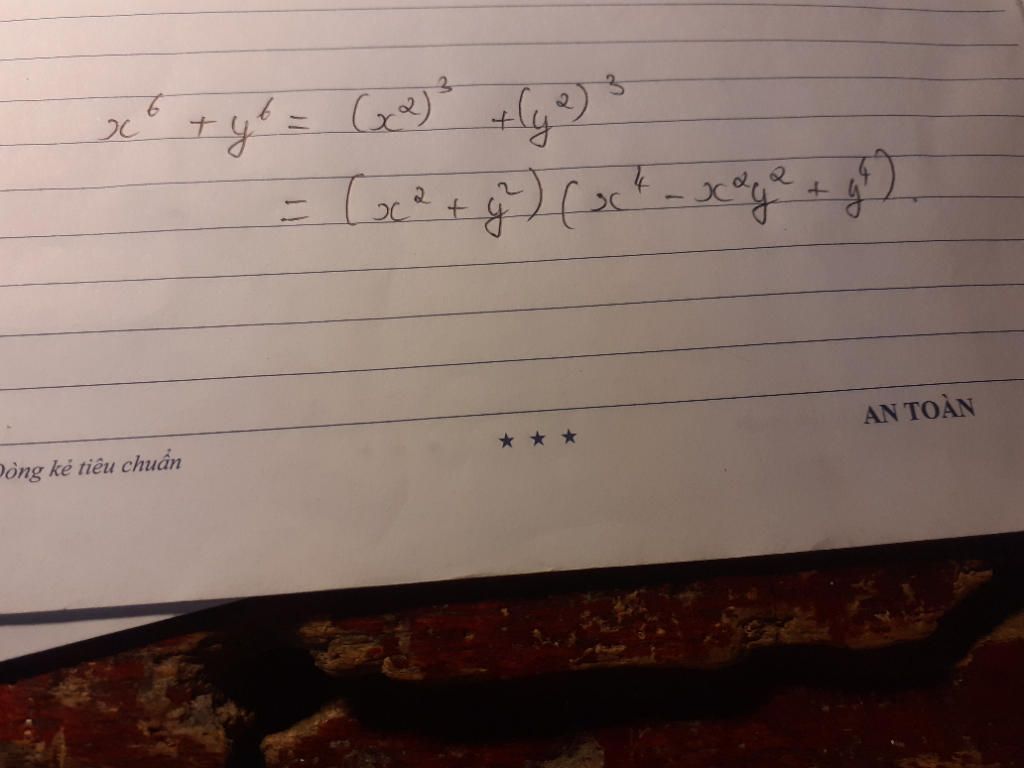 x⁶ + y⁶ = (x²)³ + (y²)³
= (x² + y²)(x⁴ - x²y² + y⁴).
AN TOÀN
★ ★ ★
Dòng kẻ tiêu chuẩn